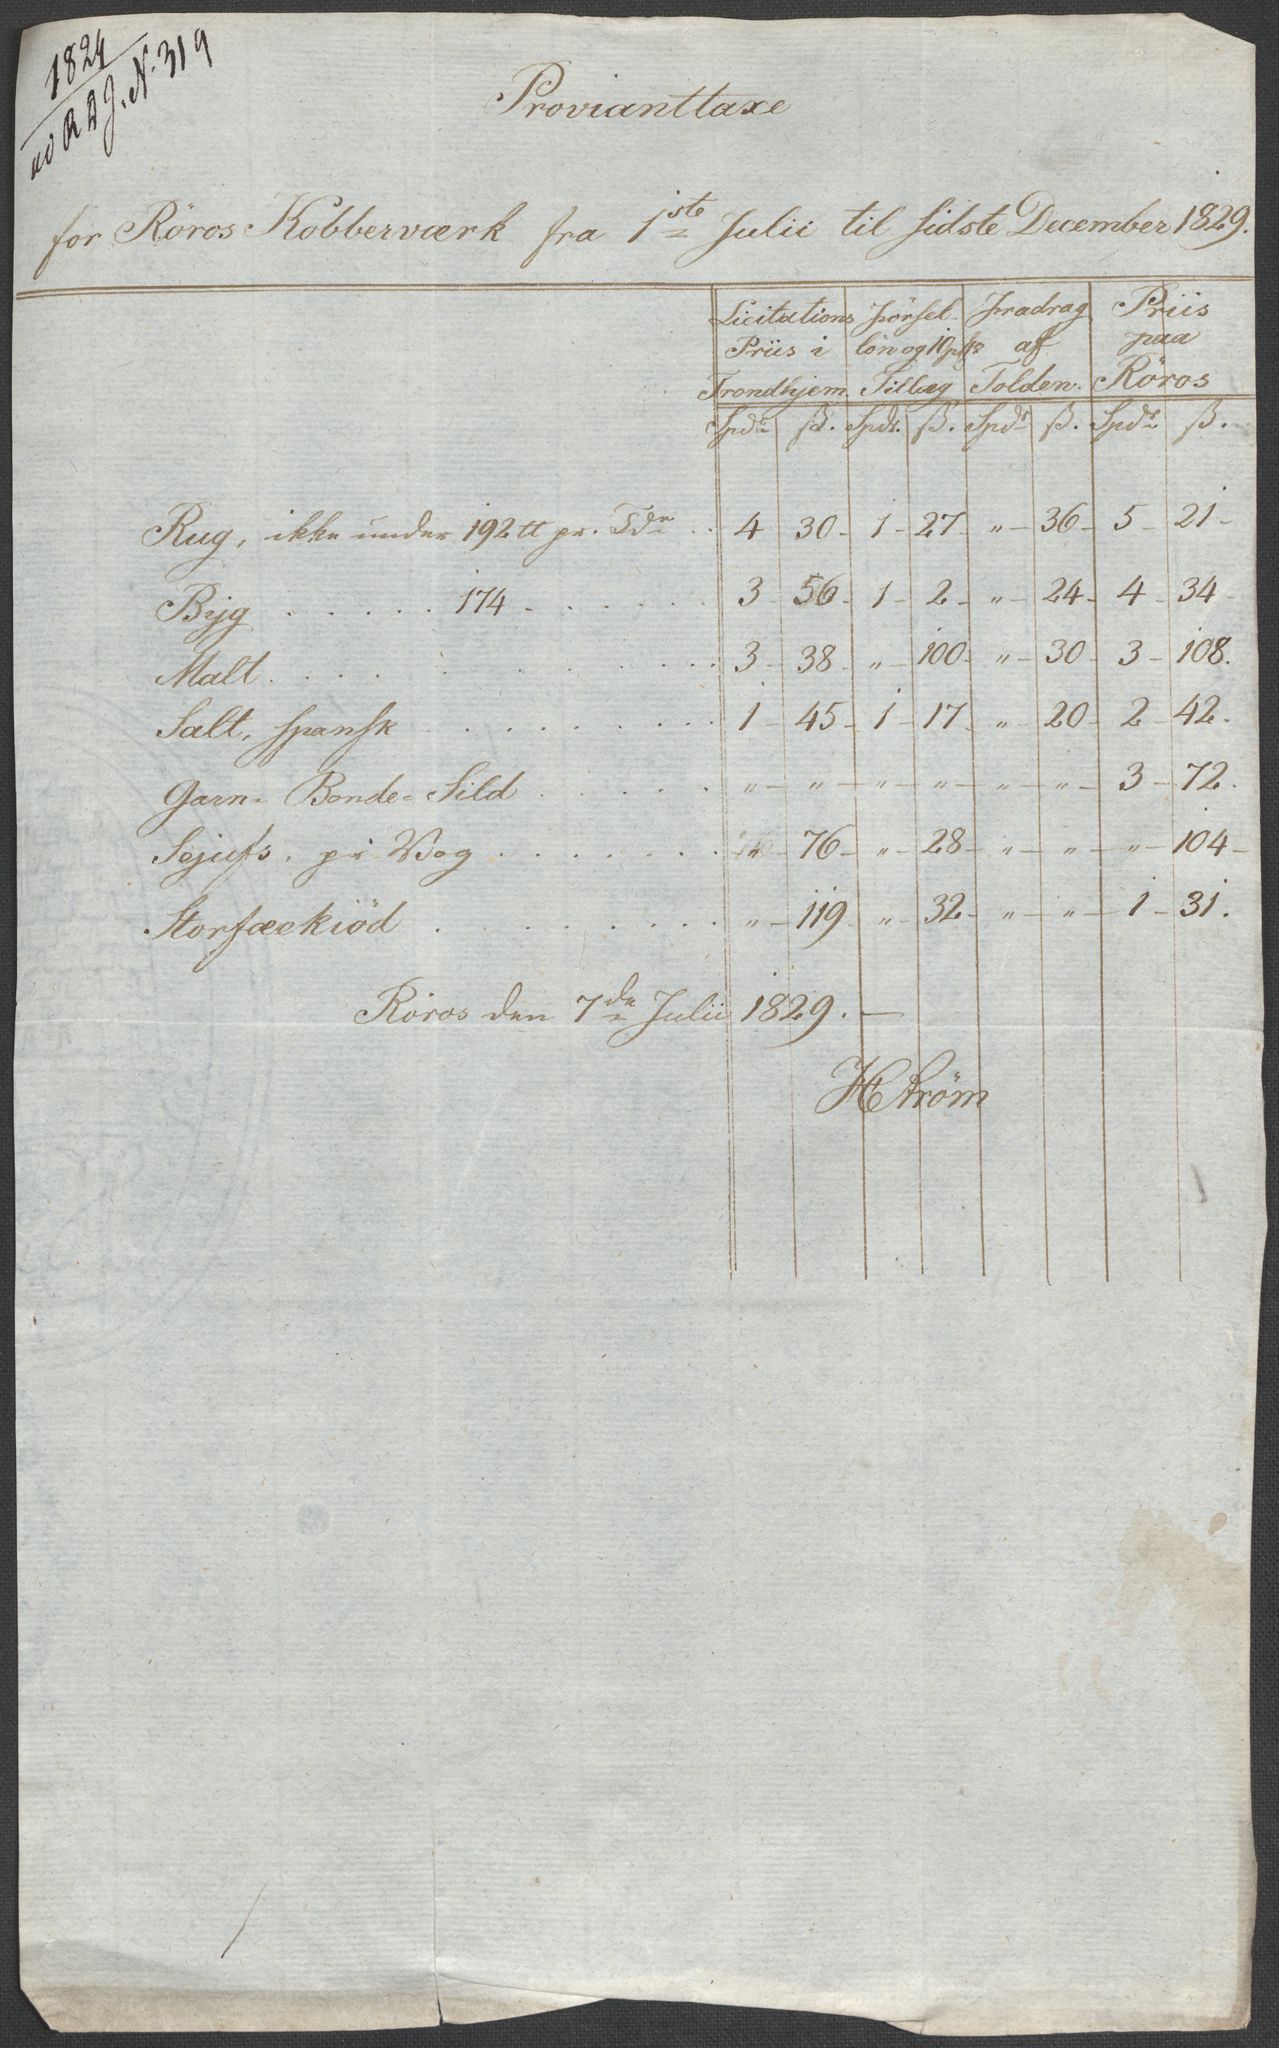 1824
ad R D J. N. 319
Provianttaxe
for Röros Kobberværk fra 1ste Julii til sidste December 1829.
Licitations Priis i Trondhjem. | Förselløn og 10 p% Tillæg | Fradrag af Tolden. | Priis paa Röros
Spdr ß. Spdr. ß. Spdr ß. Spdr ß.
Rug, ikke under 192 tt pr. Tde . . 4 30 - 1 - 27 - „ - 36 - 5 - 21 -
Byg . . . . . . 174 - . . . . . . 3 - 56 - 1 - 2 - „ - 24 - 4 - 34 -
Malt . . . . . . . . . . . 3 - 38 - „ - 100 - „ - 30 - 3 - 108.
Salt, spansk . . . . . . . . . 1 - 45 - 1 - 17 - „ - 20 - 2 - 42 -
Garn- Bonde- Sild . . . . . . „ - „ - „ - „ - „ - „ - 3 - 72.
Sejufs. pr Vog . . . . . . . . „ - 76 - „ - 28 - „ - „ - „ - 104 -
Storfækiöd . . . . . . . . . „ - 119 „ - 32 - „ - „ - 1 - 31.
Röros den 7de Julii 1829. —
HStröm